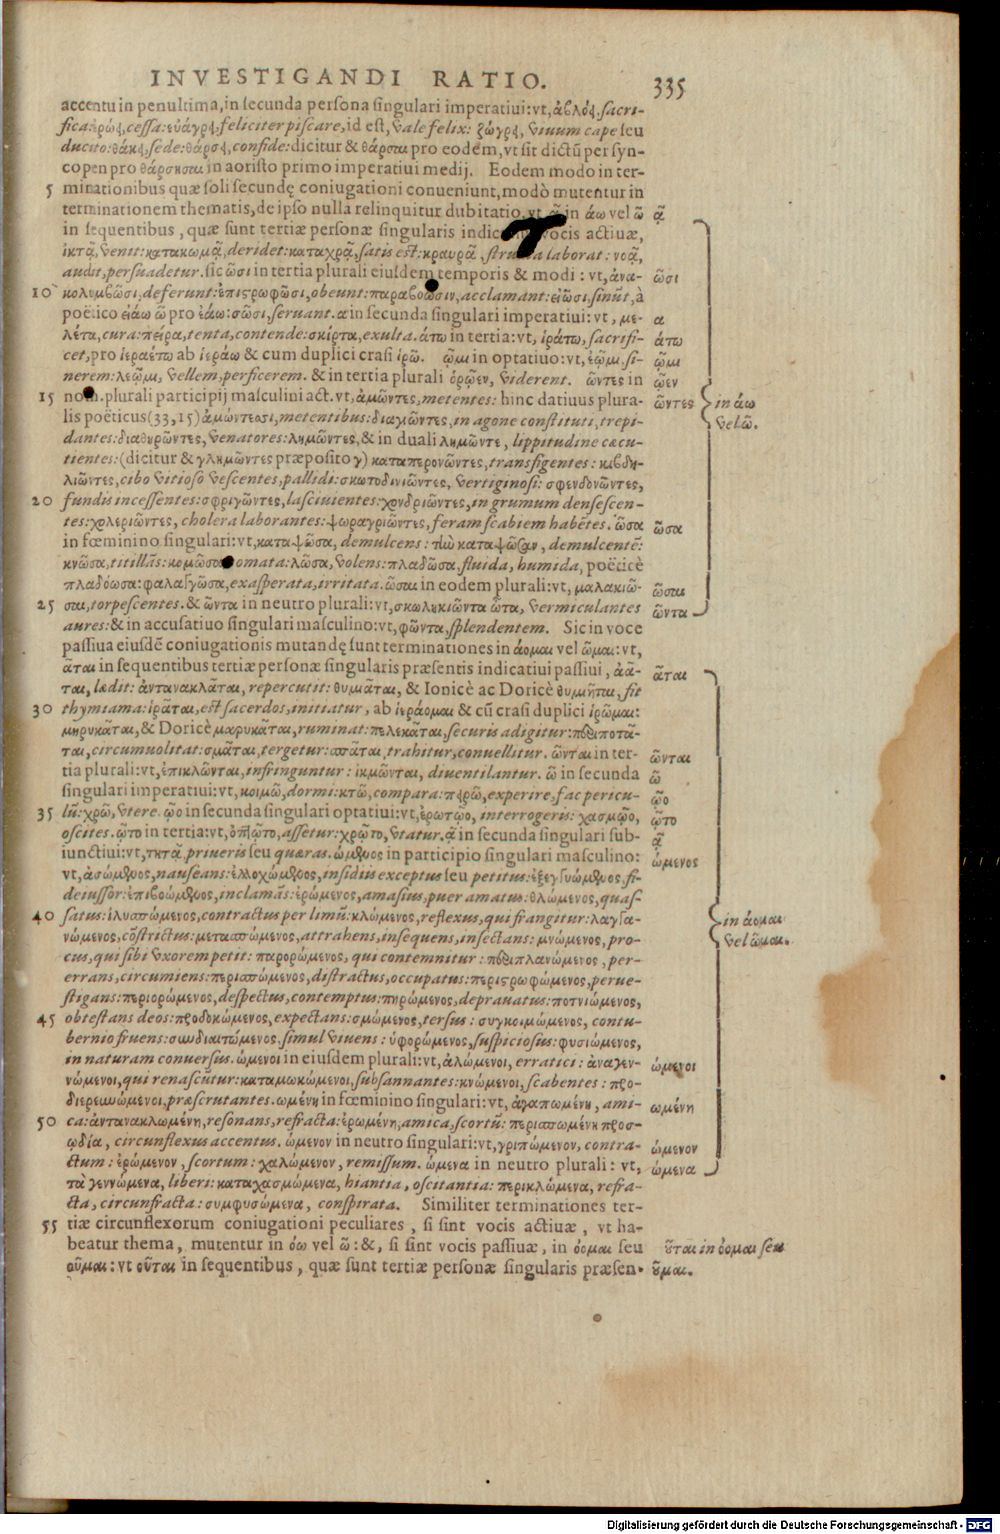 INVESTIGANDI RATIO. 335
accentu in penultima, in secunda persona singulari imperatiui: vt, sacri-
fica: cessa: feliciter piscare, id est, Vale felix: Viuum cape seu
ducito: sede: confide: dicitur & pro eodem, vt sit dictũ per syn-
copen pro in aoristo primo imperatiui medij. Eodem modo in ter-
5 minationibus quæ soli secundę coniugationi conueniunt, modò mutentur in
terminationem thematis, de ipso nulla relinquitur dubitatio. vt ᾷ in άω vel ῶ ᾷ
in sequentibus, quæ sunt tertiæ personæ singularis vocis actiuæ,
ἱκτᾷ, Venit: κατακωμᾷ, deridet: καταχρᾷ, satis est: κραυρᾷ, laborat: νοᾷ,
audit, persuadetur. sic ῶσι in tertia plurali eiusdem temporis & modi: vt, ἀνα- ῶσι
10 κολυμβῶσι, deferunt: ἐπιτρωφῶσι, obeunt: παραβοῶσιν, acclamant: εἰῶσι, sinũt, à
poëtico εἰάω ῶ pro ἐάω: σῶσι, seruant. α in secunda singulari imperatiui: vt, με- α
λέτα, cura: πείρα, tenta, contende: σκίρτα, exulta. άτω in tertia: vt, ἱράτω, sacrifi- άτω
cet, pro ἱεραέτω ab ἱεράω & cum duplici crasi ἱρῶ. ῷμι in optatiuo: vt, ἐῷμι, si- ῷμι
nerem: λεῷμι, Vellem, perficerem. & in tertia plurali ὁρῷεν, Viderent. ῶντες in ῷεν
15 nom. plurali participij masculini act. vt, ἀμῶντες, metentes: hinc datiuus plura- ῶντες in άω
lis poëticus (33, 15) ἀμώντεσι, metentibus: διαγιῶντες, in agone constituti, trepi- vel ῶ.
dantes: διαθηρῶντες, Venatores: λημῶντες, & in duali λημῶντε, lippitudine cæcu-
tientes: (dicitur & γλημῶντες præposito γ) καταπερονῶντες, transfigentes: κιβδη-
λιῶντες, cibo Vitioso Vescentes, pallidi: σκωτοδινιῶντες, Vertiginosi: σφενδονῶντες,
20 fundis incessentes: σφριγῶντες, lasciuientes: χονδριῶντες, in grumum densescen-
tes: χολεριῶντες, cholera laborantes: ψωραγριῶντες, feram scabiem habẽtes. ῶσα ῶσα
in fœminino singulari: vt, καταψῶσα, demulcens: τὼ καταψῶσαν, demulcentẽ:
κνῶσα, titillãs: κομῶσα omata: λῶσα, Volens: πλαδῶσα, fluida, humida, poëticè
πλαδόωσα: φαλαγγῶσα, exasperata, irritata. ῶσαι in eodem plurali: vt, μαλακιῶ- ῶσαι
25 σαι, torpescentes. & ῶντα in neutro plurali: vt, σκωληκιῶντα ὦτα, Vermiculantes ῶντα
aures: & in accusatiuo singulari masculino: vt, φῶντα, splendentem. Sic in voce
passiua eiusdẽ coniugationis mutandę sunt terminationes in άομαι vel ῶμαι: vt,
ᾶται in sequentibus tertiæ personæ singularis præsentis indicatiui passiui, ἀᾶ- ᾶται
ται, lædit: ἀντανακλᾶται, repercutit: θυμιᾶται, & Ionicè ac Doricè θυμιῆται, fit
30 thymiama: ἱρᾶται, est sacerdos, initiatur, ab ἱεράομαι & cũ crasi duplici ἱρῶμαι:
μηρυκᾶται, & Doricè μαρυκᾶται, ruminat: πελεκᾶται, securis adigitur: περιποτᾶ-
ται, circumuolitat: σμᾶται, tergetur: σπᾶται, trahitur, conuellitur. ῶνται in ter- ῶνται
tia plurali: vt, ἐπικλῶνται, infringuntur: ἰκμῶνται, diuentilantur. ῶ in secunda ῶ
singulari imperatiui: vt, κοιμῶ, dormi: κτῶ, compara: πειρῶ, experire, fac pericu- ῷο
35 lũ: χρῶ, Vtere. ῷο in secunda singulari optatiui: vt, ἐρωτῷο, interrogeris: χασμῷο, ῷτο
oscites. ῷτο in tertia: vt, ὀπῷτο, assetur: χρῷτο, Vtatur. ᾷ in secunda singulari sub- ᾷ
iunctiui: vt, τητᾷ, priueris seu quæras. ώμενος in participio singulari masculino: ώμενος
vt, ἀσώμενος, nauseans: ἐλλοχώμενος, insidiis exceptus seu petitus: ἐξεγγυώμενος, fi-
deiussor: ἐπιβοώμενος, inclamãs: ἐρώμενος, amasius, puer amatus: θλώμενος, quas-
40 satus: ἰλυσπώμενος, contractus per limũ: κλώμενος, reflexus, qui frangitur: λαγγα- in άομαι
νώμενος, cõstrictus: μετασπώμενος, attrahens, insequens, insectans: μνώμενος, pro- vel ῶμαι.
cus, qui sibi Vxorem petit: παρορώμενος, qui contemnitur: περιπλανώμενος, per-
errans, circumiens: περισπώμενος, distractus, occupatus: περιτρωφώμενος, perue-
stigans: περιορώμενος, despectus, contemptus: πηρώμενος, deprauatus: ποτνιώμενος,
45 obtestans deos: προσδοκώμενος, expectans: σμώμενος, tersus: συγκοιμώμενος, contu-
bernio fruens: συνδιαιτώμενος, simul Viuens: ὑφορώμενος, suspiciosus: φυσιώμενος,
in naturam conuersus. ώμενοι in eiusdem plurali: vt, ἀλώμενοι, erratici: ἀναγεν- ώμενοι
νώμενοι, qui renascũtur: καταμωκώμενοι, subsannantes: κνώμενοι, scabentes: προ-
διερευνώμενοι, præscrutantes. ωμένη in fœminino singulari: vt, ἀγαπωμένη, ami- ωμένη
50 ca: ἀντανακλωμένη, resonans, refracta: ἐρωμένη, amica, scortũ: περισπωμένη προσ-
ῳδία, circunflexus accentus. ώμενον in neutro singulari: vt, γριπώμενον, contra- ώμενον
ctum: ἐρώμενον, scortum: χαλώμενον, remissum. ώμενα in neutro plurali: vt, ώμενα
τὰ γεννώμενα, liberi: καταχασμώμενα, hiantia, oscitantia: περικλώμενα, refra-
cta, circunfracta: συμφυσώμενα, conspirata. Similiter terminationes ter-
55 tiæ circunflexorum coniugationi peculiares, si sint vocis actiuæ, vt ha-
beatur thema, mutentur in όω vel ῶ: &, si sint vocis passiuæ, in όομαι seu οῦται in όομαι seu
οῦμαι: vt οῦται in sequentibus, quæ sunt tertiæ personæ singularis præsen- οῦμαι.
Digitalisierung gefördert durch die Deutsche Forschungsgemeinschaft - DFG